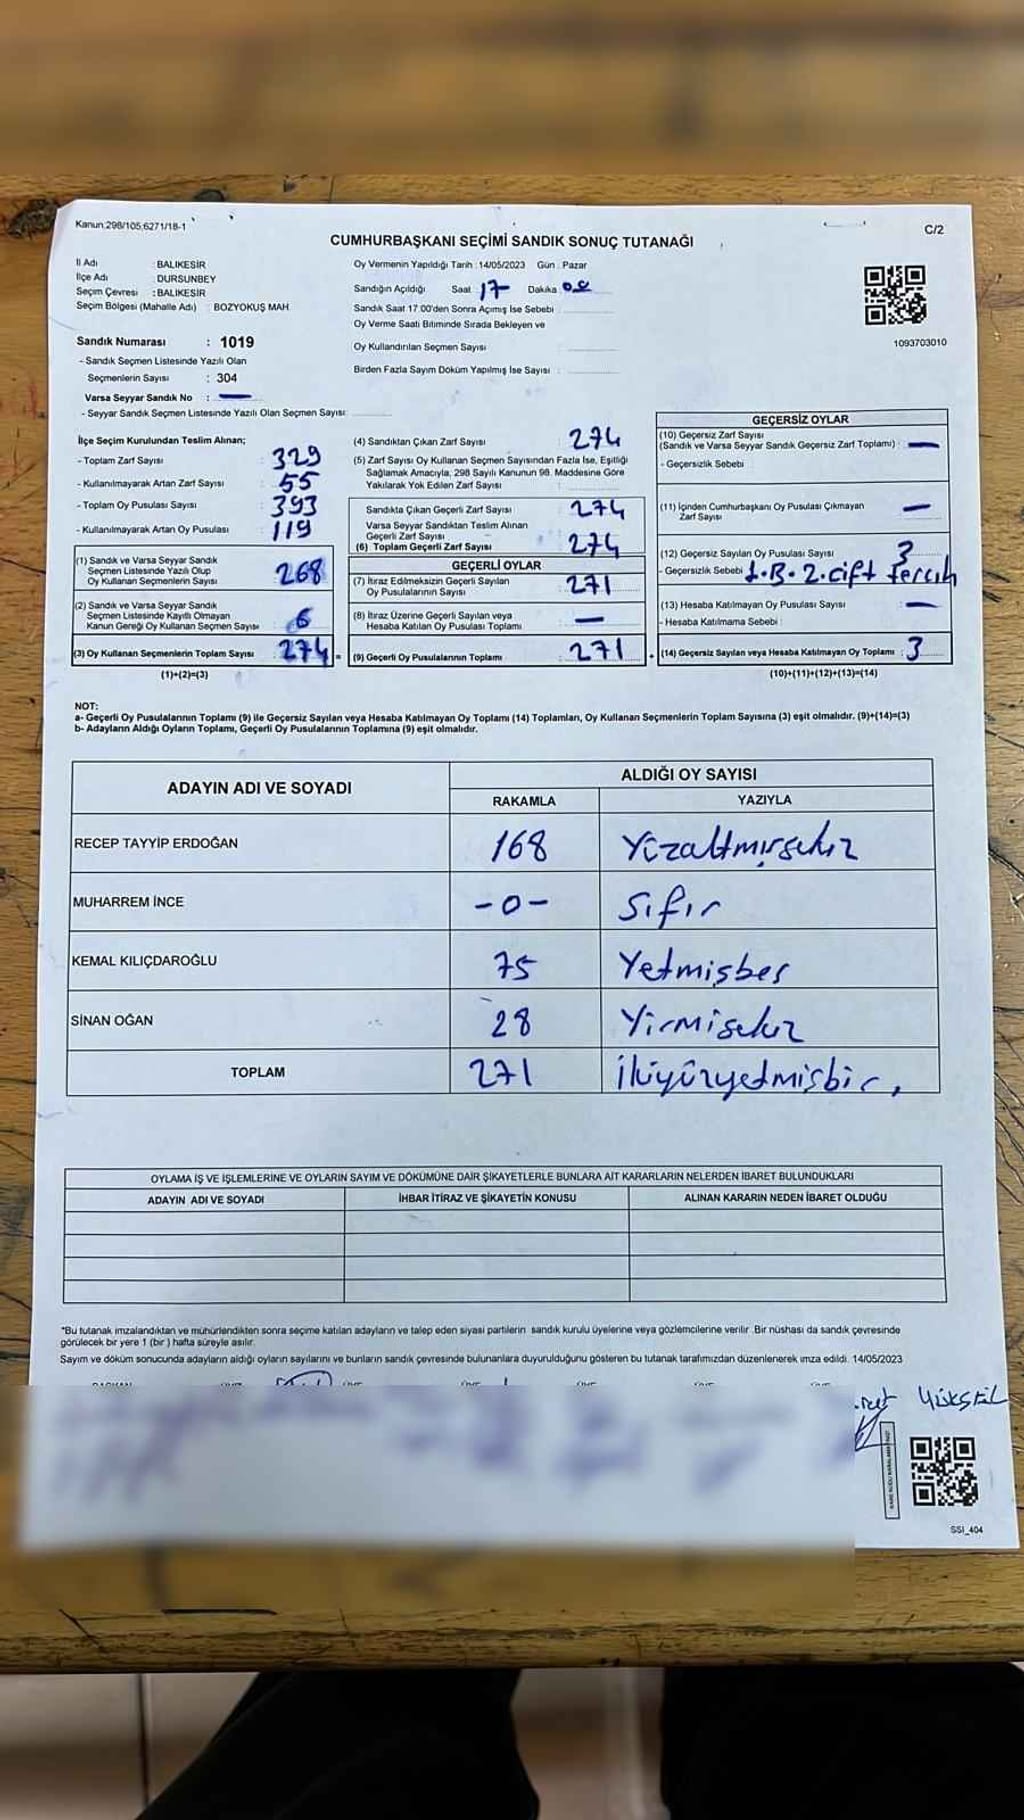 Kanun;298/105;6271/18-1
C/2
CUMHURBAŞKANI SEÇİMİ SANDIK SONUÇ TUTANAĞI
İl Adı : BALIKESİR
İlçe Adı : DURSUNBEY
Seçim Çevresi : BALIKESİR
Seçim Bölgesi (Mahalle Adı) : BOZYOKUŞ MAH.
Oy Vermenin Yapıldığı Tarih : 14/05/2023 Gün : Pazar
Sandığın Açıldığı Saat 17 Dakika
Sandık Saat 17.00'den Sonra Açımış İse Sebebi
Oy Verme Saati Bitiminde Sırada Bekleyen ve
Oy Kullandırılan Seçmen Sayısı
Birden Fazla Sayım Döküm Yapılmış İse Sayısı :
1093703010
Sandık Numarası : 1019
- Sandık Seçmen Listesinde Yazılı Olan
Seçmenlerin Sayısı : 304
Varsa Seyyar Sandık No : —
- Seyyar Sandık Seçmen Listesinde Yazılı Olan Seçmen Sayısı:
İlçe Seçim Kurulundan Teslim Alınan;
- Toplam Zarf Sayısı : 329
- Kullanılmayarak Artan Zarf Sayısı : 55
- Toplam Oy Pusulası Sayısı : 393
- Kullanılmayarak Artan Oy Pusulası : 119
(1) Sandık ve Varsa Seyyar Sandık
Seçmen Listesinde Yazılı Olup
Oy Kullanan Seçmenlerin Sayısı : 268
(2) Sandık ve Varsa Seyyar Sandık
Seçmen Listesinde Kayıtlı Olmayan
Kanun Gereği Oy Kullanan Seçmen Sayısı : 6
(3) Oy Kullanan Seçmenlerin Toplam Sayısı : 274 =
(1)+(2)=(3)
(4) Sandıktan Çıkan Zarf Sayısı : 274
(5) Zarf Sayısı Oy Kullanan Seçmen Sayısından Fazla İse, Eşitliği
Sağlamak Amacıyla, 298 Sayılı Kanunun 98. Maddesine Göre
Yakılarak Yok Edilen Zarf Sayısı
Sandıkta Çıkan Geçerli Zarf Sayısı : 274
Varsa Seyyar Sandıktan Teslim Alınan
Geçerli Zarf Sayısı
(6) Toplam Geçerli Zarf Sayısı : 274
GEÇERLİ OYLAR
(7) İtiraz Edilmeksizin Geçerli Sayılan
Oy Pusulalarının Sayısı : 271
(8) İtiraz Üzerine Geçerli Sayılan veya
Hesaba Katılan Oy Pusulası Toplamı : —
(9) Geçerli Oy Pusulalarının Toplamı : 271 +
GEÇERSİZ OYLAR
(10) Geçersiz Zarf Sayısı
(Sandık ve Varsa Seyyar Sandık Geçersiz Zarf Toplamı) : —
- Geçersizlik Sebebi
(11) İçinden Cumhurbaşkanı Oy Pusulası Çıkmayan
Zarf Sayısı : —
(12) Geçersiz Sayılan Oy Pusulası Sayısı : 3
- Geçersizlik Sebebi 2. çift tercih
(13) Hesaba Katılmayan Oy Pusulası Sayısı : —
- Hesaba Katılmama Sebebi :
(14) Geçersiz Sayılan veya Hesaba Katılmayan Oy Toplamı : 3
(10)+(11)+(12)+(13)=(14)
NOT:
a- Geçerli Oy Pusulalarının Toplamı (9) ile Geçersiz Sayılan veya Hesaba Katılmayan Oy Toplamı (14) Toplamları, Oy Kullanan Seçmenlerin Toplam Sayısına (3) eşit olmalıdır. (9)+(14)=(3)
b- Adayların Aldığı Oyların Toplamı, Geçerli Oy Pusulalarının Toplamına (9) eşit olmalıdır.
ADAYIN ADI VE SOYADI ALDIĞI OY SAYISI
RAKAMLA YAZIYLA
RECEP TAYYİP ERDOĞAN 168 Yüzaltmışsekiz
MUHARREM İNCE -0- Sıfır
KEMAL KILIÇDAROĞLU 75 Yetmişbeş
SİNAN OĞAN 28 Yirmisekiz
TOPLAM 271 İkiyüzyetmişbir
OYLAMA İŞ VE İŞLEMLERİNE VE OYLARIN SAYIM VE DÖKÜMÜNE DAİR ŞİKAYETLERLE BUNLARA AİT KARARLARIN NELERDEN İBARET BULUNDUKLARI
ADAYIN ADI VE SOYADI İHBAR İTİRAZ VE ŞİKAYETİN KONUSU ALINAN KARARIN NEDEN İBARET OLDUĞU
*Bu tutanak imzalandıktan ve mühürlendikten sonra seçime katılan adayların ve talep eden siyasi partilerin sandık kurulu üyelerine veya gözlemcilerine verilir. Bir nüshası da sandık çevresinde
görülecek bir yere 1 (bir) hafta süreyle asılır.
Sayım ve döküm sonucunda adayların aldığı oyların sayılarını ve bunların sandık çevresinde bulunanlara duyurulduğunu gösteren bu tutanak tarafımızdan düzenlenerek imza edildi. 14/05/2023
SSI_404